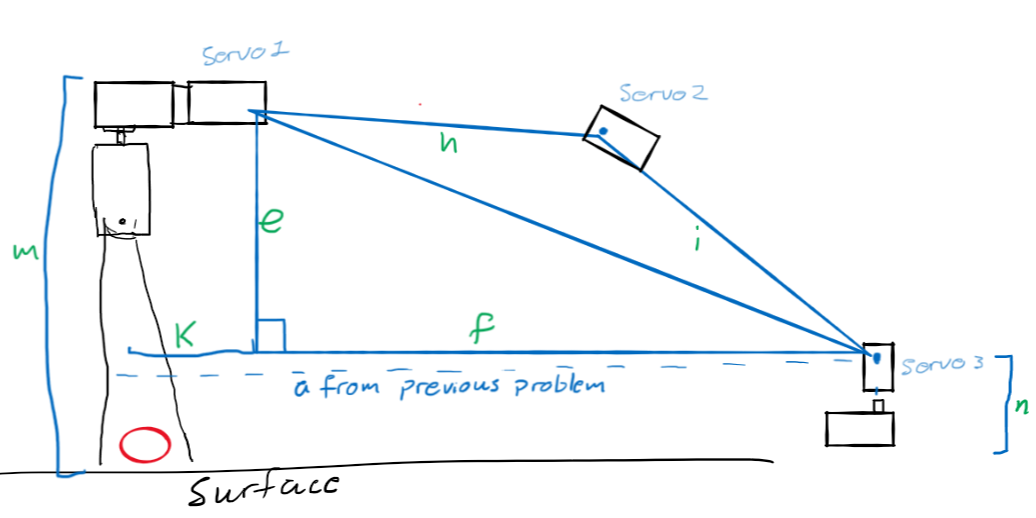 Servo 1
Servo 2
h
m
e
i
K
f
Servo 3
a from previous problem
n
Surface